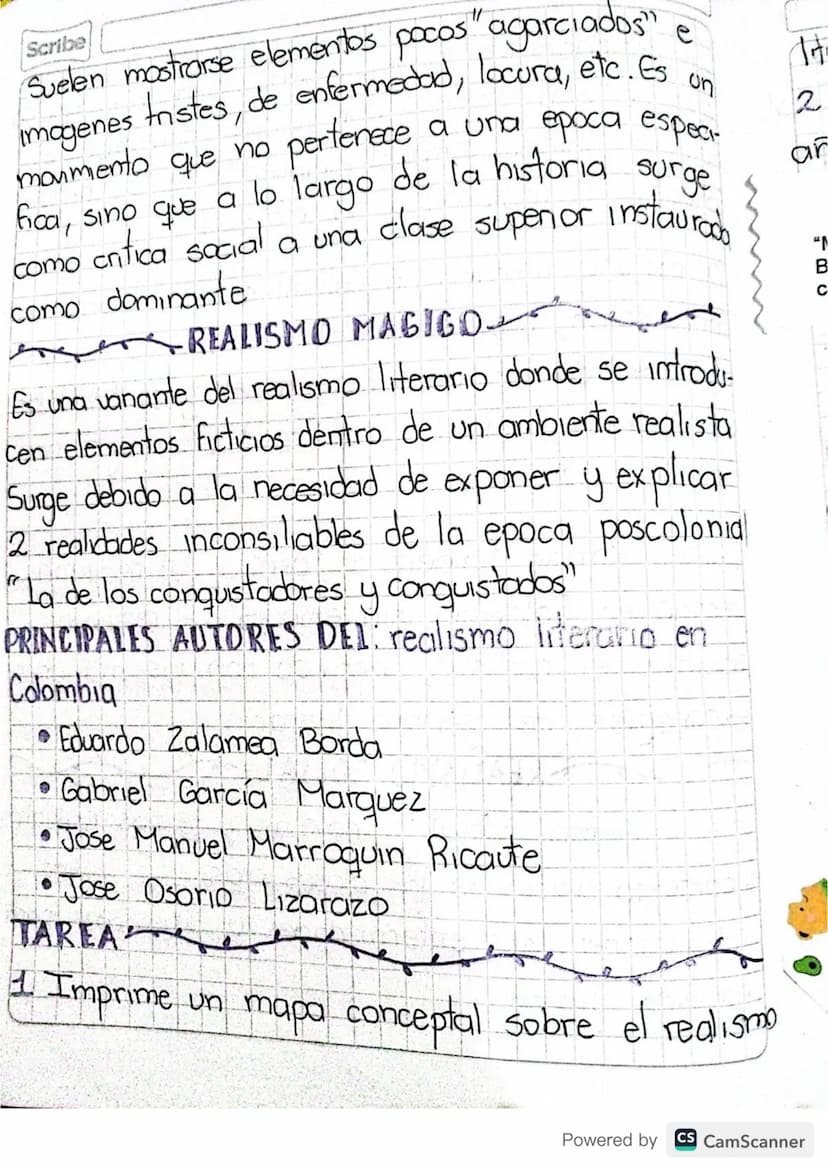 Scribe
Suelen mostrarse elementos pocos "agarciados" e
imagenes tristes, de enfermedad, locura, etc. Es un
movimento que no pertenece a una epoca especi-
fica, sino que a lo largo de la historia surge
como critica social a una clase superior instaurado
como dominante
REALISMO MAGICO
Es una variante del realismo literario donde se introdu-
cen elementos ficticios dentro de un ambiente realista
Surge debido a la necesidad de exponer y explicar
2 realidades inconsiliables de la epoca poscolonial
"La de los conquistadores y conquistados"
PRINCIPALES AUTORES DEL: realismo literario en
Colombia
• Eduardo Zalamea Borda
• Gabriel García Marquez
• Jose Manuel Marroquin Ricaute
• Jose Osorio Lizarazo
TAREA
1 Imprime un mapa conceptal sobre el realismo
2
Powered by CS CamScanner